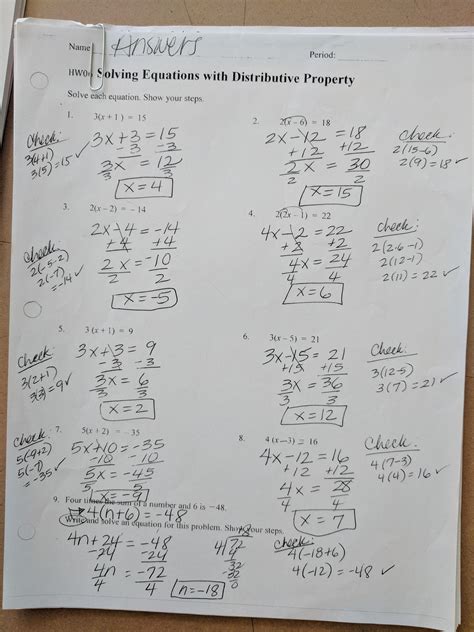 Name Answers
Period:
HW06 Solving Equations with Distributive Property
Solve each equation. Show your steps.
1. 3(x + 1) = 15
3x + 3 = 15
-3 -3
3x = 12
3 3
x = 4
Check:
3(4+1)
3(5) = 15 ✓
2. 2(x – 6) = 18
2x - 12 = 18
+12 +12
2x = 30
2 2
x = 15
Check:
2(15-6)
2(9) = 18 ✓
3. 2(x – 2) = – 14
2x - 4 = -14
+4 +4
2x = -10
2 2
x = -5
Check:
2(-5-2)
2(-7)
= -14 ✓
4. 2(2x – 1) = 22
4x - 2 = 22
+2 +2
4x = 24
4 4
x = 6
Check:
2(2·6-1)
2(12-1)
2(11) = 22 ✓
5. 3 (x + 1) = 9
3x + 3 = 9
-3 -3
3x = 6
3 3
x = 2
Check:
3(2+1)
3(3) = 9 ✓
6. 3(x – 5) = 21
3x - 15 = 21
+15 +15
3x = 36
3 3
x = 12
Check:
3(12-5)
3(7) = 21 ✓
7. 5(x + 2) = – 35
5x + 10 = -35
-10 -10
5x = -45
5 5
x = -9
Check:
5(-9+2)
5(-7)
= -35 ✓
8. 4 (x – 3) = 16
4x - 12 = 16
+12 +12
4x = 28
4 4
x = 7
Check:
4(7-3)
4(4) = 16 ✓
9. Four times the sum of a number and 6 is −48.
4(n+6) = -48
Write and solve an equation for this problem. Show your steps.
4n + 24 = -48
-24 -24
4n = -72
4 4
n = -18
4 72
4
32
-32
0
Check:
4(-18+6)
4(-12) = -48 ✓